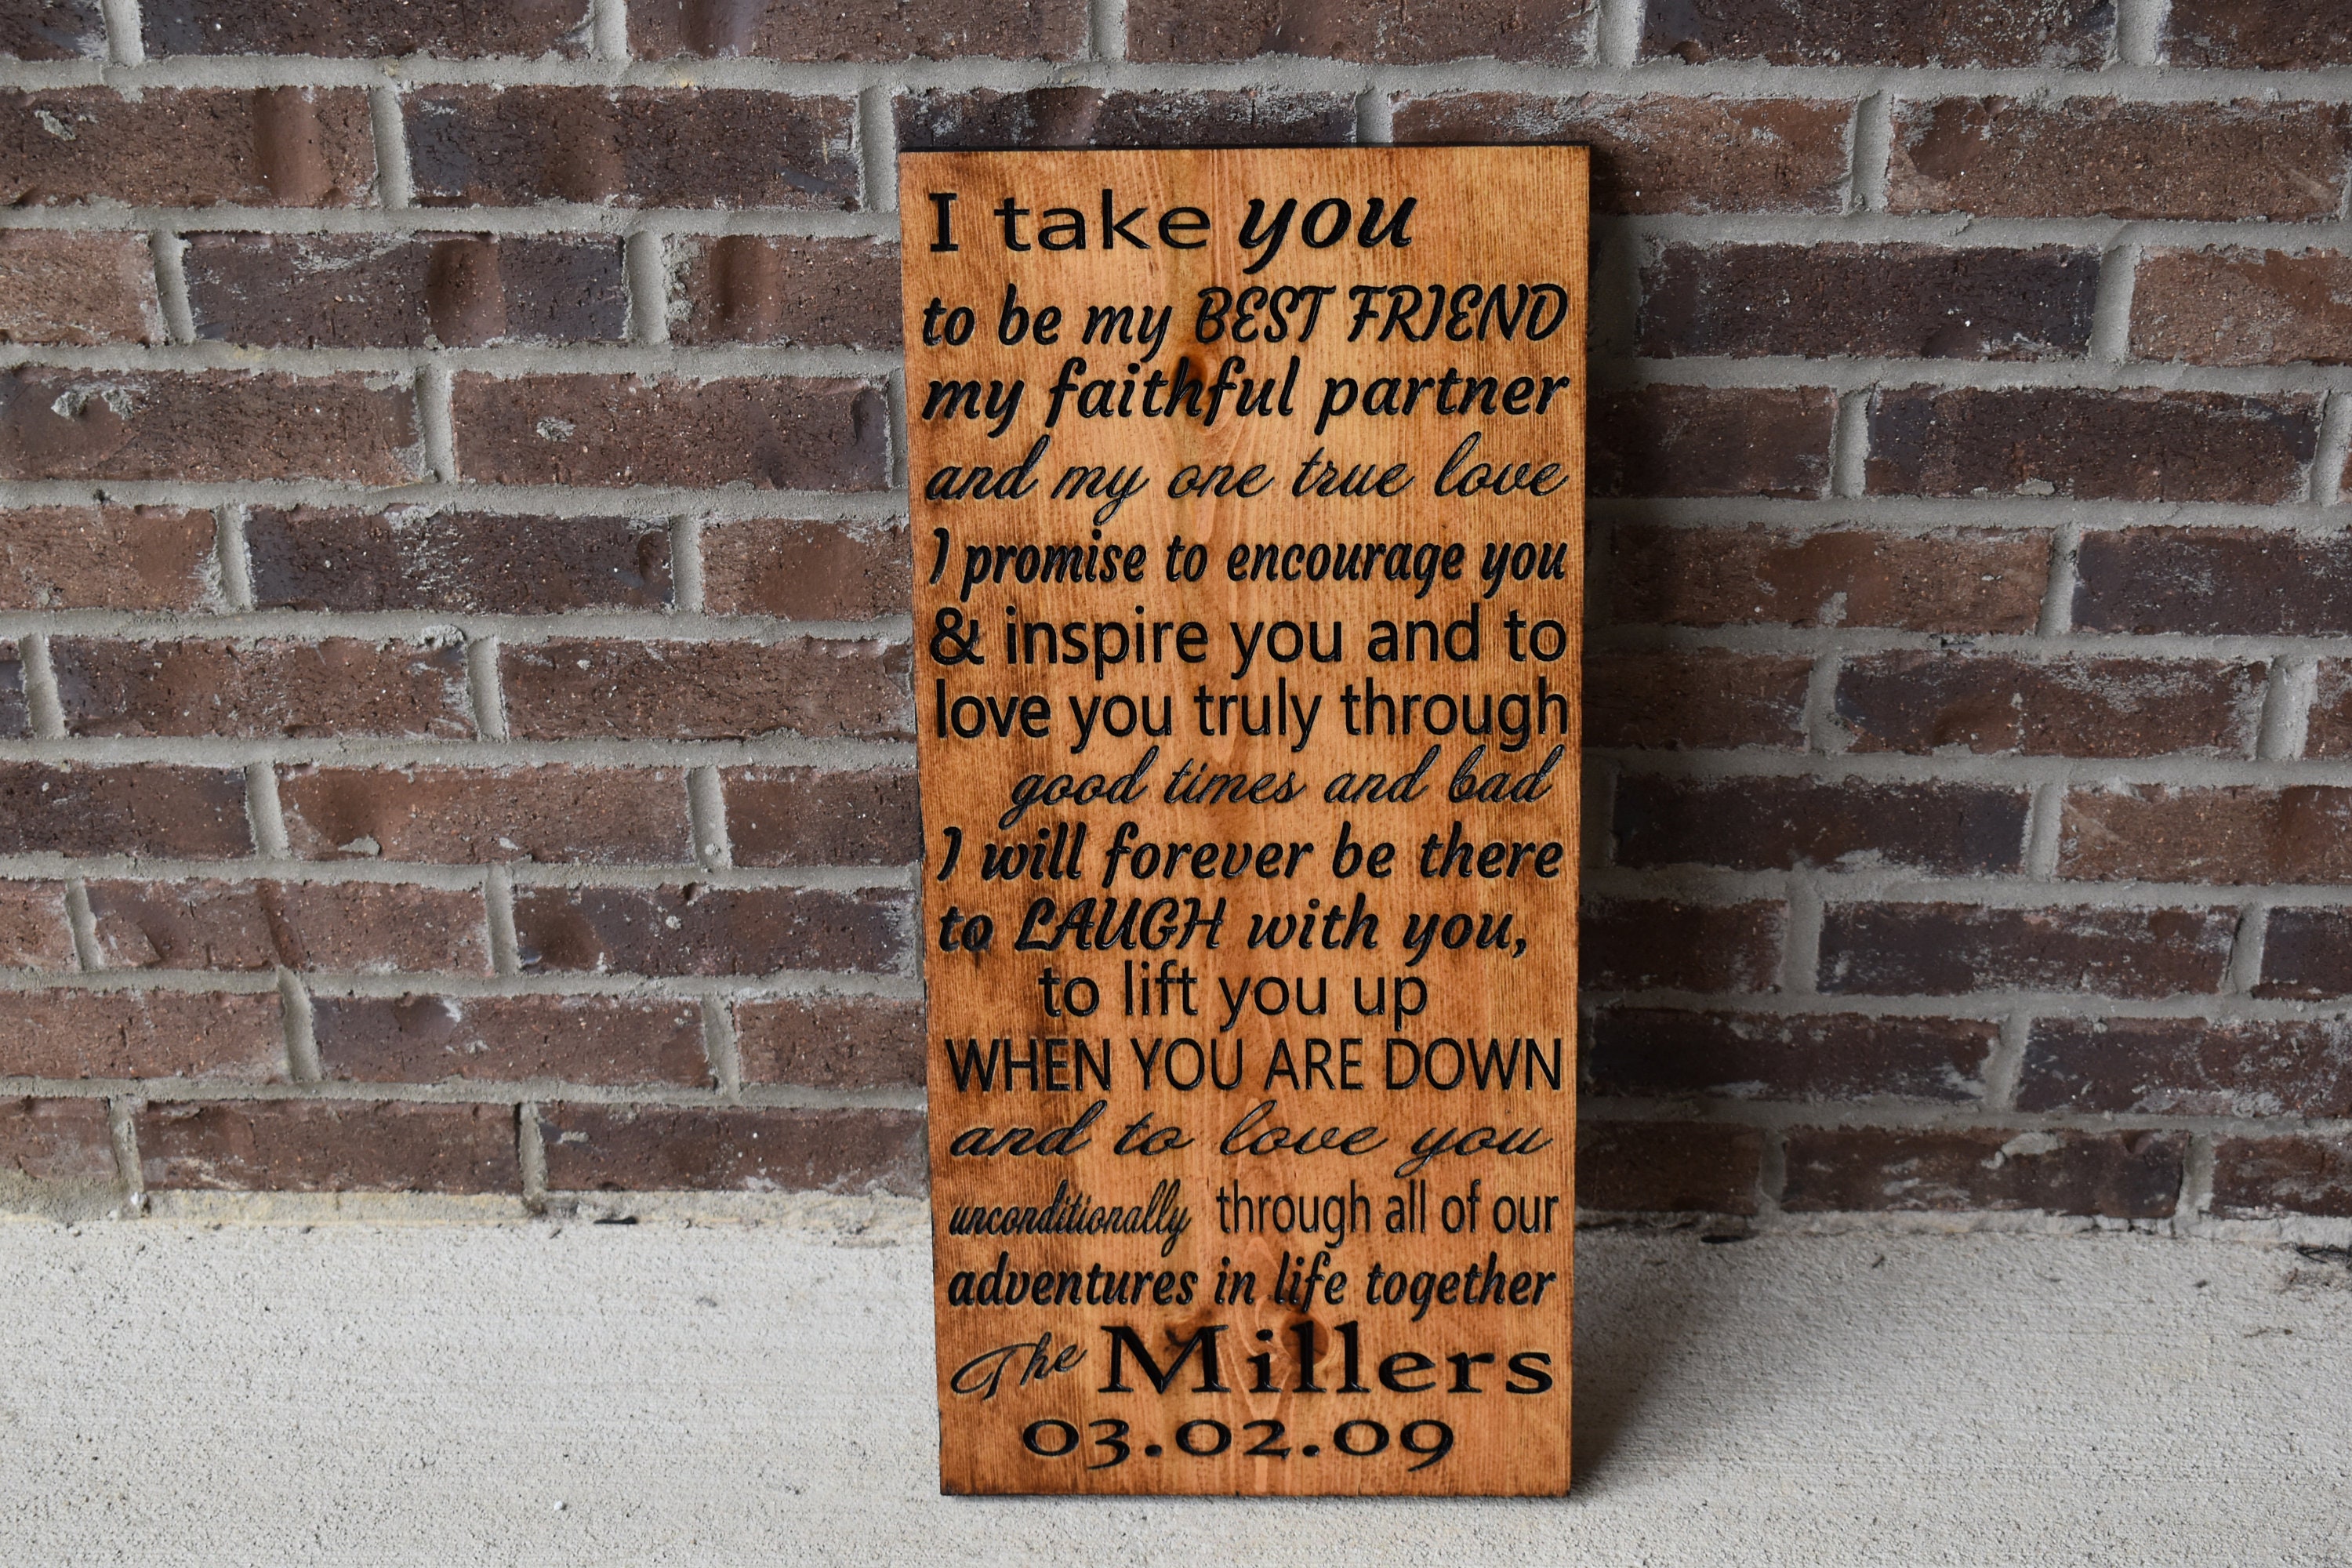 I take you
to be my BEST FRIEND
my faithful partner
and my one true love
I promise to encourage you
& inspire you and to
love you truly through
good times and bad
I will forever be there
to LAUGH with you,
to lift you up
WHEN YOU ARE DOWN
and to love you
unconditionally through all of our
adventures in life together
The Millers
03.02.09